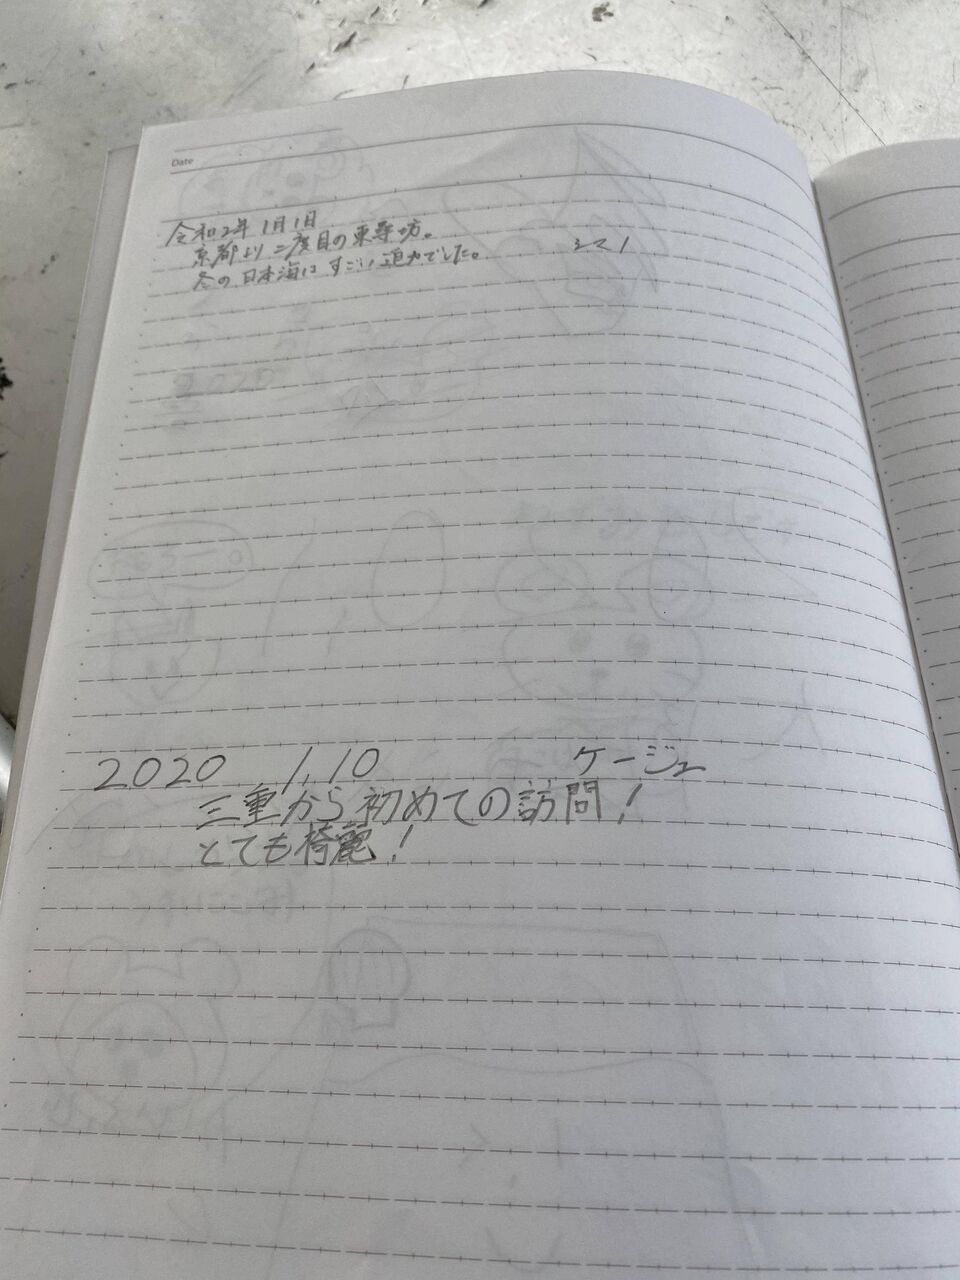 Date
令和2年 1月1日
京都より二度目の東尋坊。
冬の日本海はすごい迫力でした。
2020 1,10 ケージュ
三重から初めての訪問！
とても綺麗！